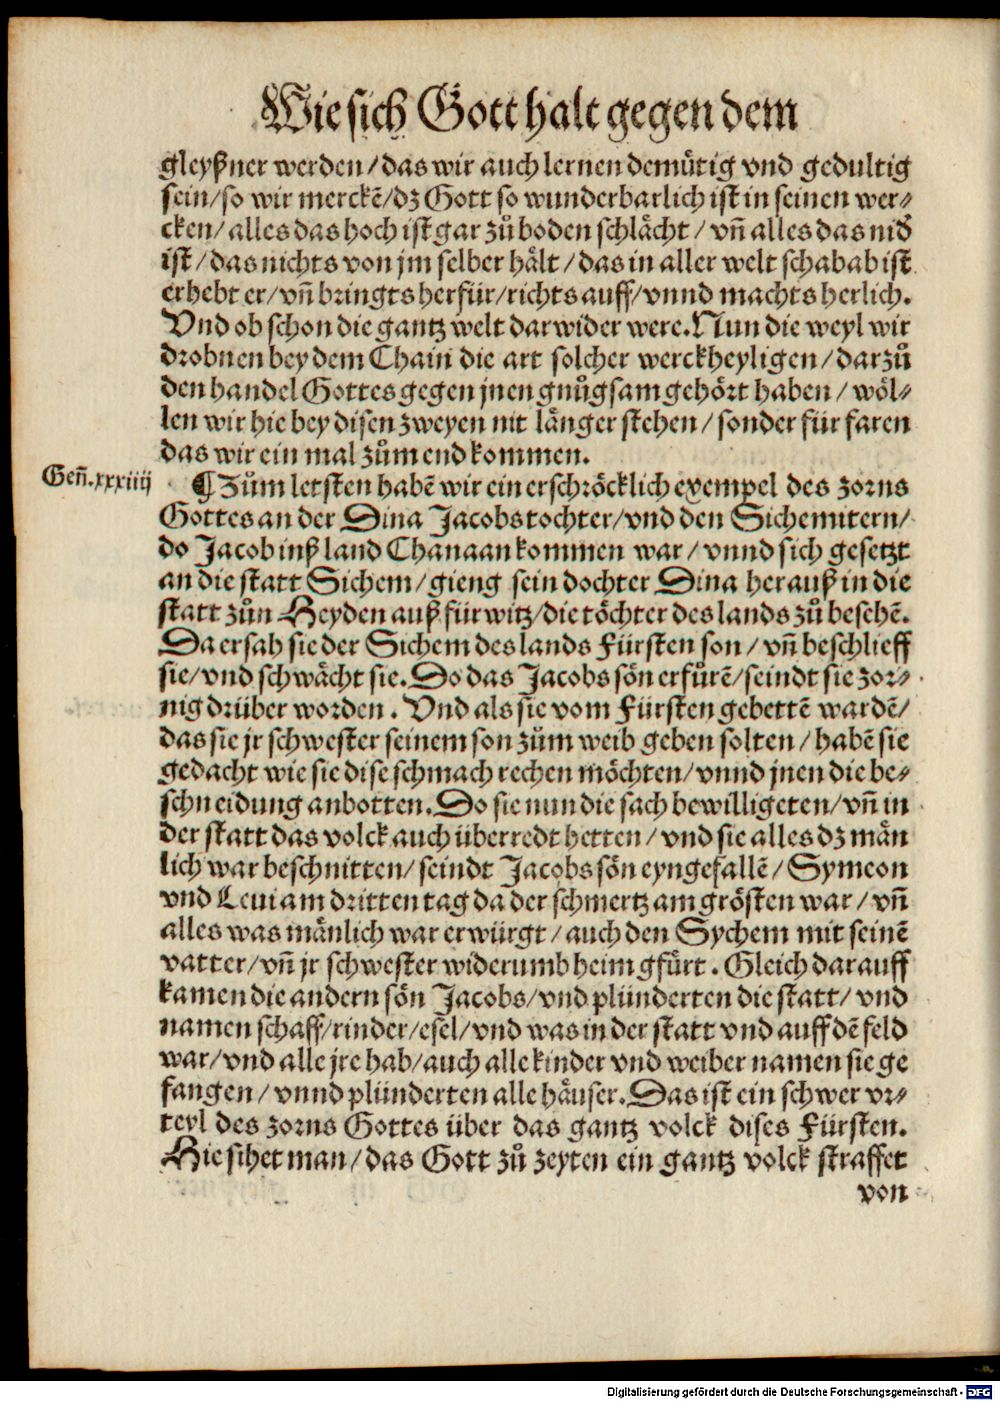 Wie sich Gott halt gegen dem
gleyßner werden/das wir auch lernen demütig vnd gedultig
sein/so wir merckē/dz Gott so wunderbarlich ist in seinen wer⸗
cken/alles das hoch ist gar zů boden schlächt/vñ alles das nid̕
ist/das nichts von jm selber hält/das in aller welt schabab ist
erhebt er/vñ bringts herfür/richts auff/vnnd machts herlich.
Vnd ob schon die gantz welt darwider were. Nun die weyl wir
drobnen bey dem Chain die art solcher werckheyligen/darzů
den handel Gottes gegen jnen gnůgsam gehört haben/wöl⸗
len wir hie bey disen zweyen nit länger stehen/sonder für faren
das wir ein mal zům end kommen.
Geñ.xxxiiij
¶ Zům letsten habē wir ein erschröcklich exempel des zorns
Gottes an der Dina Jacobs tochter/vnd den Sichemitern/
do Jacob inß land Chanaan kommen war/vnnd sich gesetzt
an die statt Sichem/gieng sein dochter Dina herauß in die
statt zůn Heyden auß fürwitz/die töchter des lands zů besehē.
Da ersah sie der Sichem des lands Fürsten son/vñ beschlieff
sie/vnd schwächt sie. Do das Jacobs sön erfůrē/seindt sie zor⸗
nig drüber worden. Vnd als sie vom Fürsten gebettē wardē/
das sie jr schwester seinem son zům weib geben solten/habē sie
gedacht wie sie dise schmach rechen möchten/vnnd jnen die be⸗
schneidung anbotten. Do sie nun die sach bewilligeten/vñ in
der statt das volck auch überredt hetten/vnd sie alles dz män
lich war beschnitten/seindt Jacobs sön eyngefallē/Symeon
vnd Leui am dritten tag da der schmertz am grösten war/vñ
alles was mänlich war erwürgt/auch den Sychem mit seinē
vatter/vñ jr schwester widerumb heim gfürt. Gleich darauff
kamen die andern sön Jacobs/vnd plünderten die statt/vnd
namen schaff/rinder/esel/vnd was in der statt vnd auff dē feld
war/vnd alle jre hab/auch alle kinder vnd weiber namen sie ge
fangen/vnnd plünderten alle häuser. Das ist ein schwer vr⸗
teyl des zorns Gottes über das gantz volck dises Fürsten.
Hie sihet man/das Gott zů zeyten ein gantz volck straffet
von
Digitalisierung gefördert durch die Deutsche Forschungsgemeinschaft - DFG